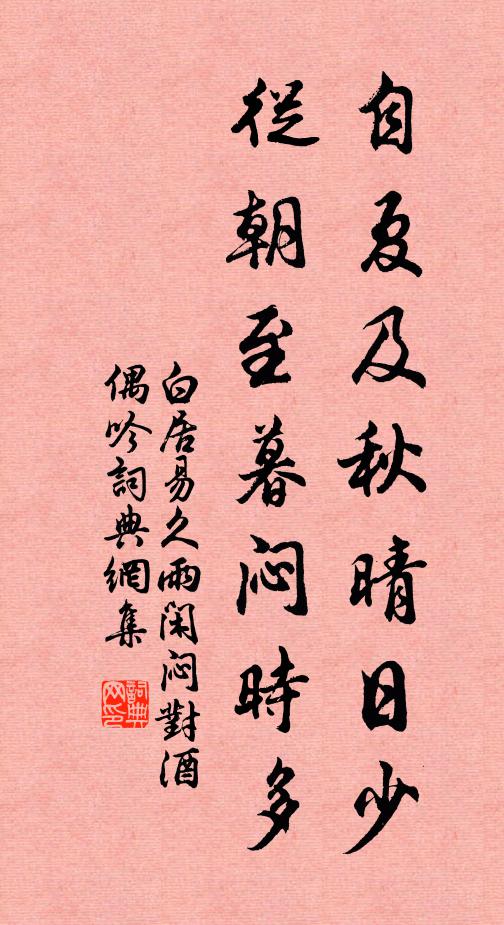 自夏及秋晴日少
從朝至暮闷時多
白居易久雨闲闷對酒
偶吟詞典網集
詞典网印